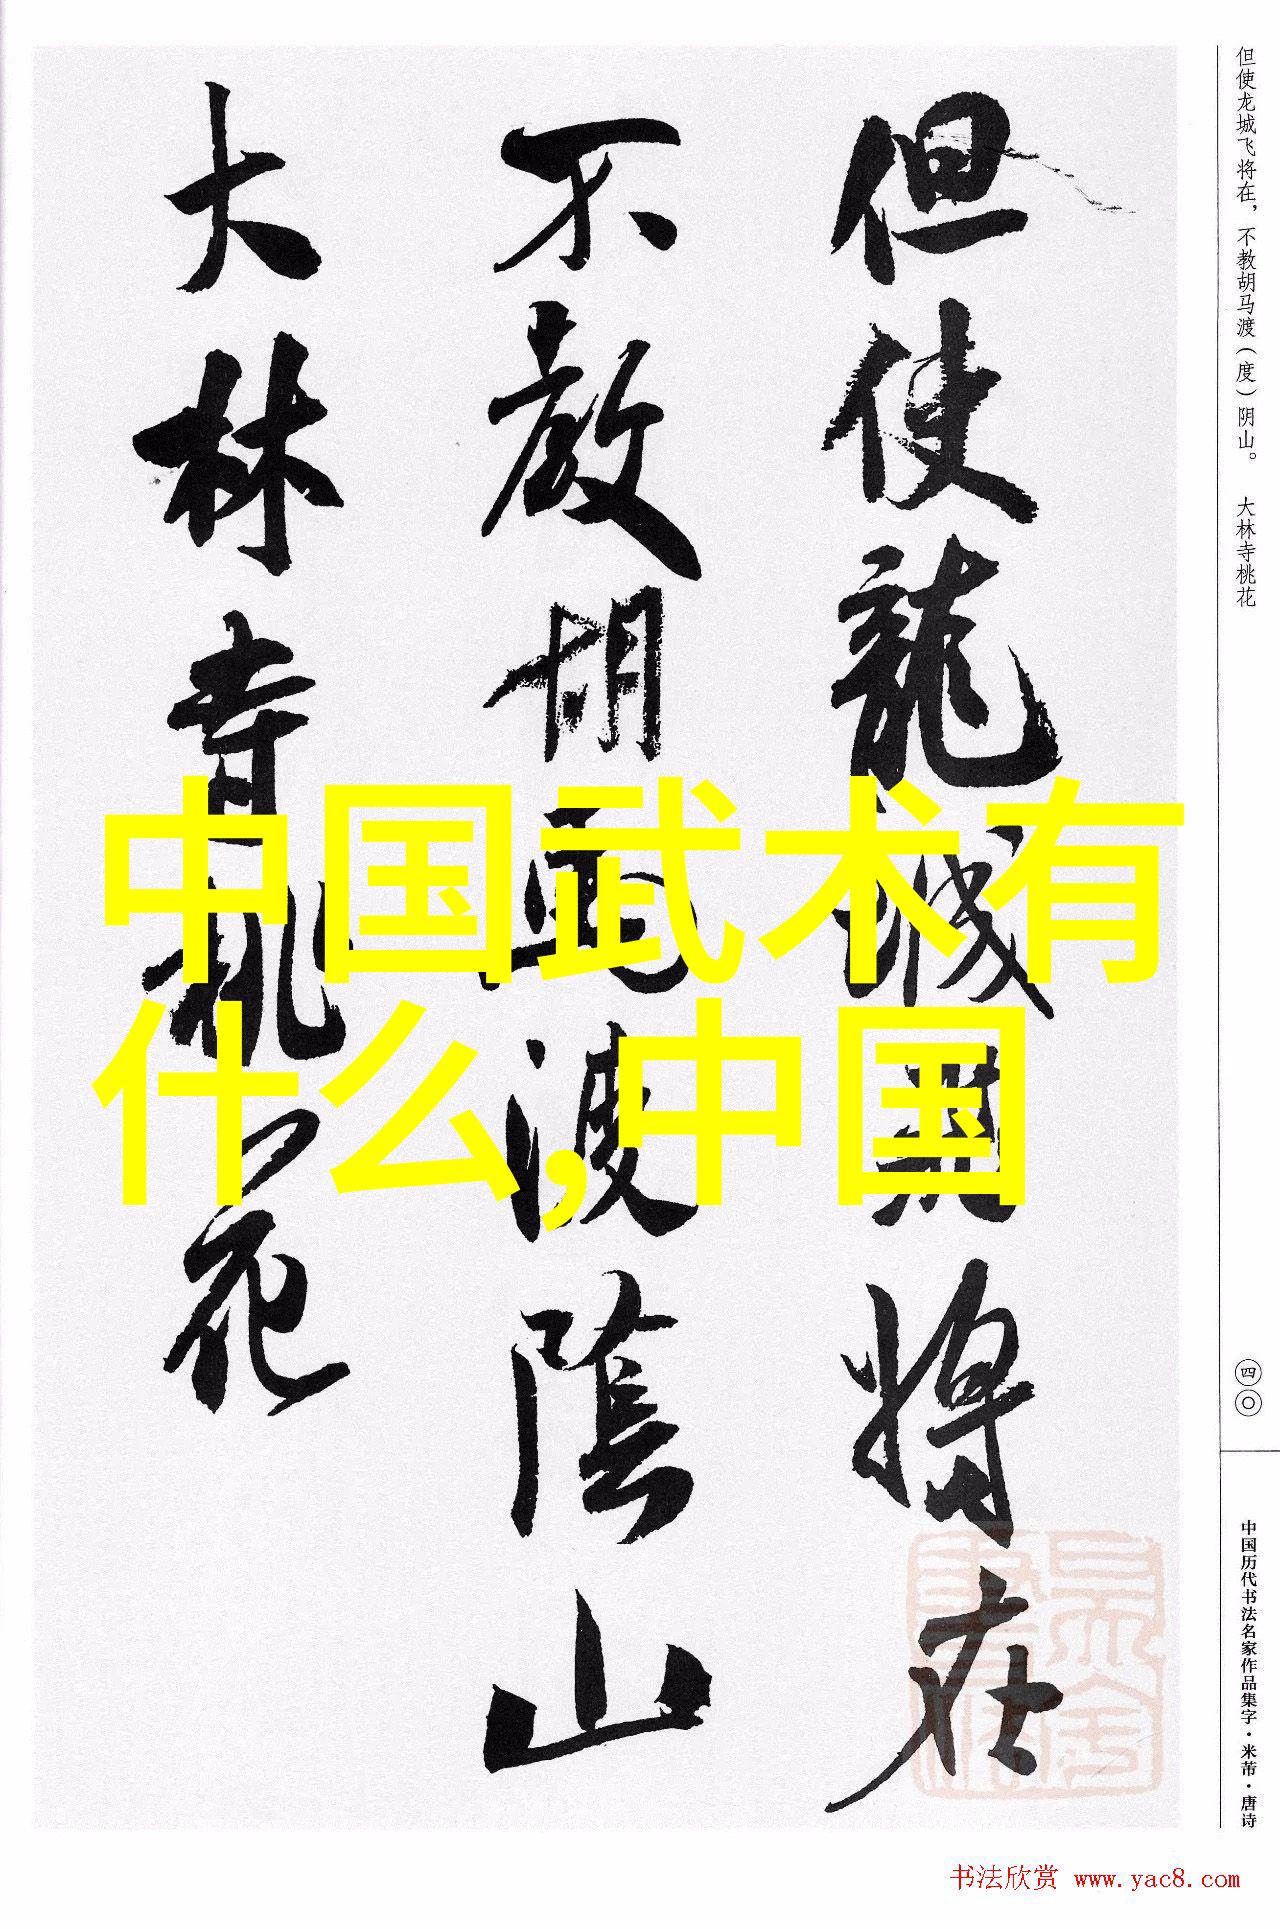 但使龍城飛將在
不教胡馬渡陰山
大林寺桃花
中国武术有
什么,中国
但使龙城飞将在，不教胡马渡（度）阴山。 大林寺桃花
四〇
中国历代书法名家作品集字·米芾·唐诗
书法欣赏 www.yac8.com